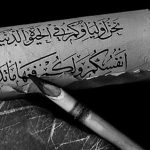 نحن أولياؤكم في الحيوة الدنيا
أنفسكم ولكم فيها ما